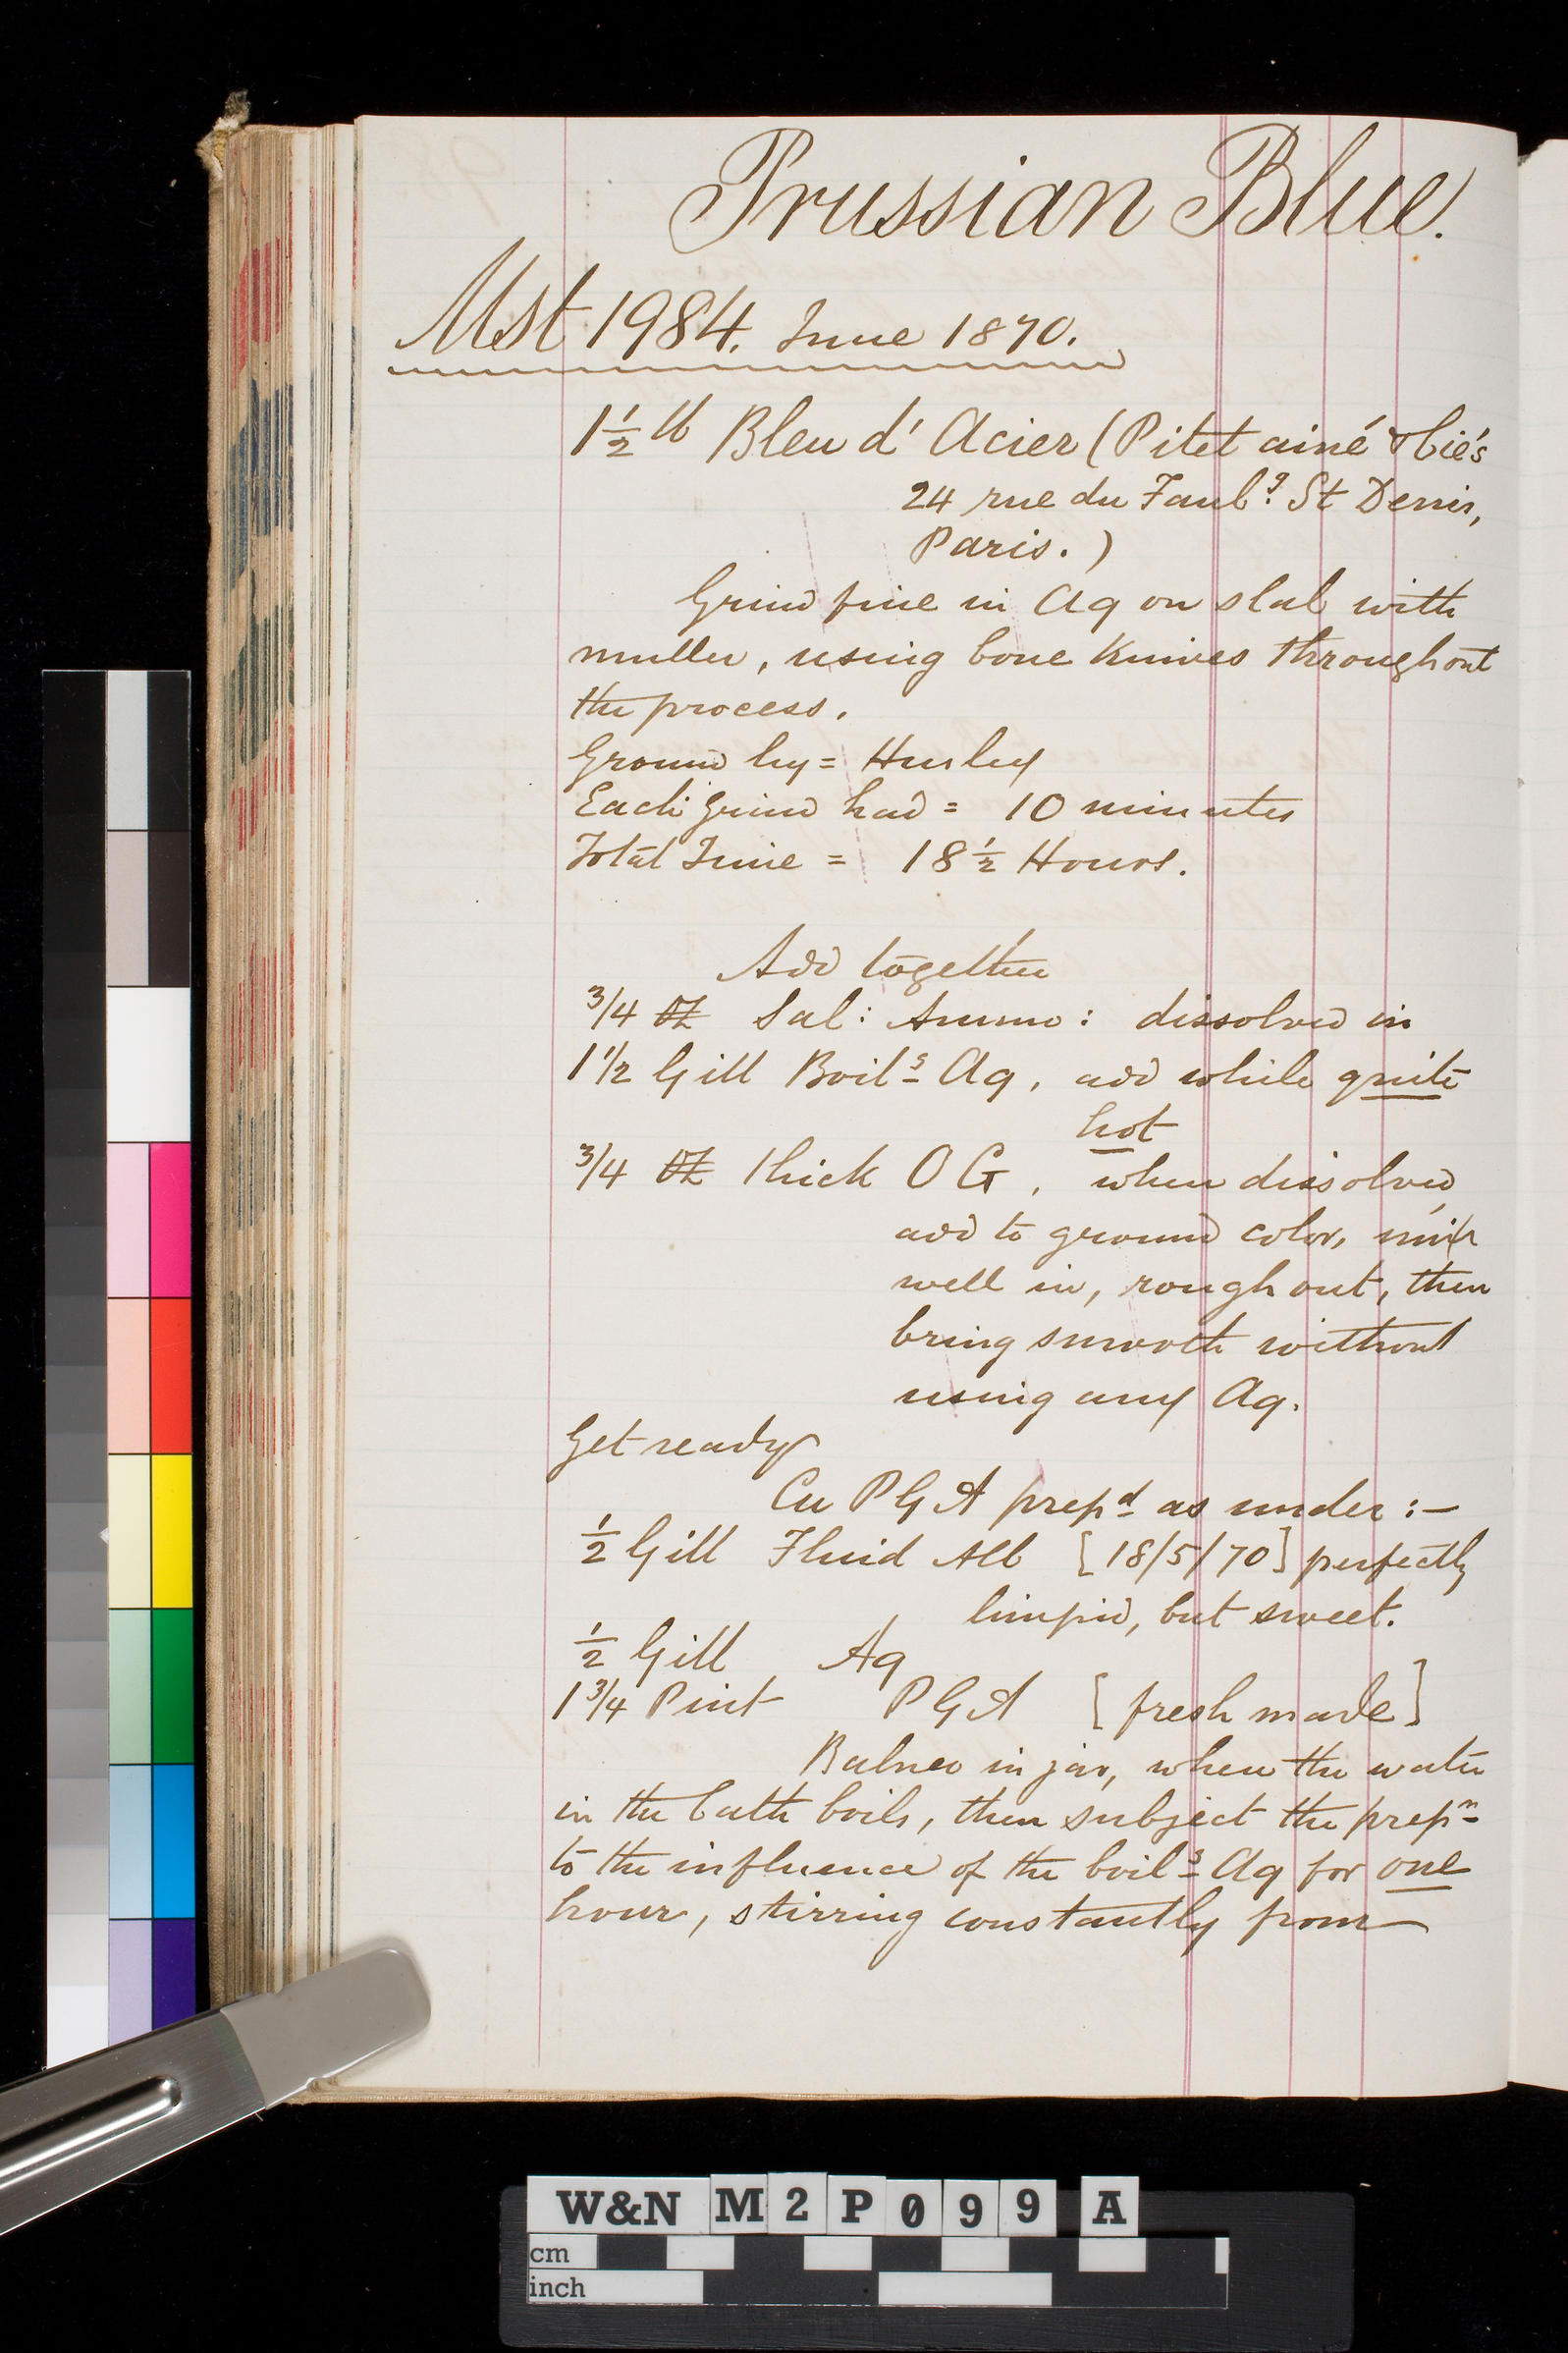 Prussian Blue.
Mst 1984. June 1870.
1 1/2 lb Bleu d' Acier (Pitet ainé & Cie's
24 rue du Faubg. St Denis,
Paris.)
Grind fine in Aq on slab with
muller, using bone knives throughout
the process.
Ground by = Hurley
Each grind had = 10 minutes
Total Time = 18 1/2 Hours.
Add together
3/4 oz Sal: Ammo: dissolved in
1 1/2 Gill Boilg Aq, add while quite
hot
3/4 oz thick O G, when dissolved,
add to ground color, mix
well in, rough out, then
bring smooth without
using any Aq.
Get ready
Cu P G A prepd as under :-
1/2 Gill Fluid Alb [18/5/70] perfectly
limpid, but sweet.
1/2 Gill Aq
1 3/4 Pint P G A [fresh made]
Balneo in jar, when the water
in the bath boils, then subject the prepn
to the influence of the boilg Aq for one
hour, stirring constantly from
W&N M2P099 A
cm
inch